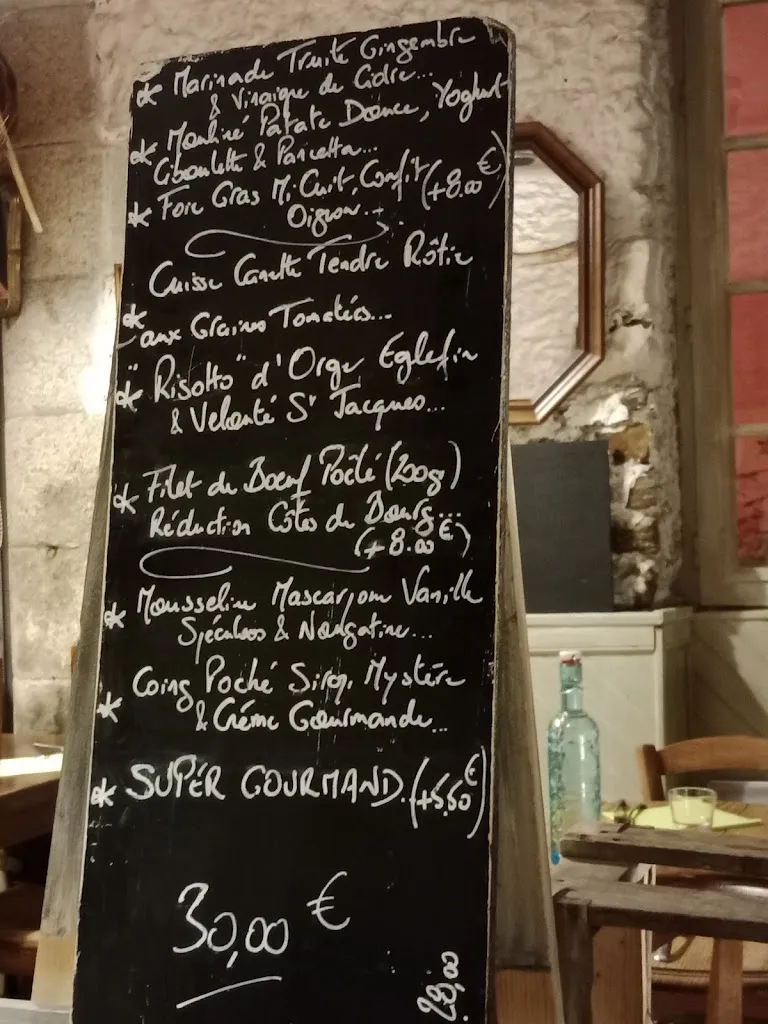 * Marinade Truite Gingembre
& Vinaigre de Cidre...
* Mouliné Patate Douce, Yoghurt
Ciboulette & Pancetta...
* Foie Gras Mi-Cuit, Confit (+8.00€)
Oignon...
Cuisse Canette Tendre Rôtie
* aux Graines Tomatées...
* "Risotto" d'Orge Eglefin
& Velouté St Jacques...
* Filet de Boeuf Poêlé (200g)
Réduction Côtes de Bourg...
(+8.00€)
* Mousseline Mascarpone Vanille
Spéculoos & Nougatine...
Coing Poché Sirop Mystère
* & Crème Gourmande...
* SUPÉR GOURMAND. (+5.50€)
30,00 €